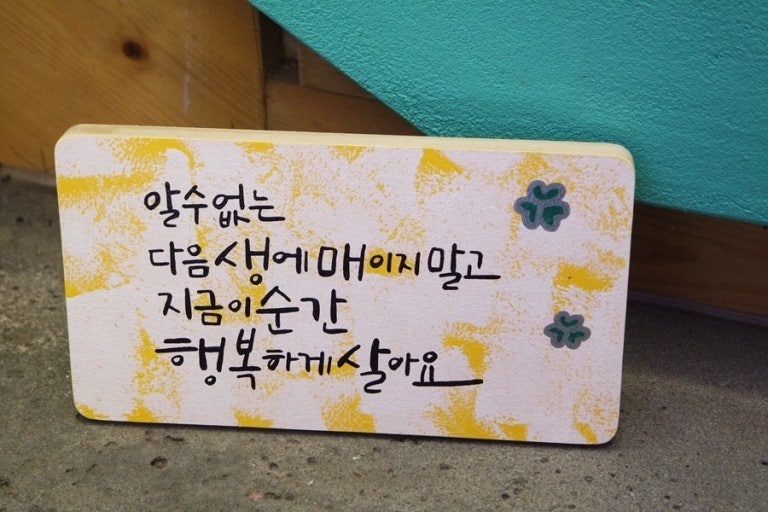 알수없는
다음 생에 매이지 말고
지금 이 순간
행복하게 살아요